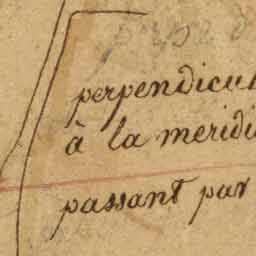 perpendicul
à la meridi
passant par